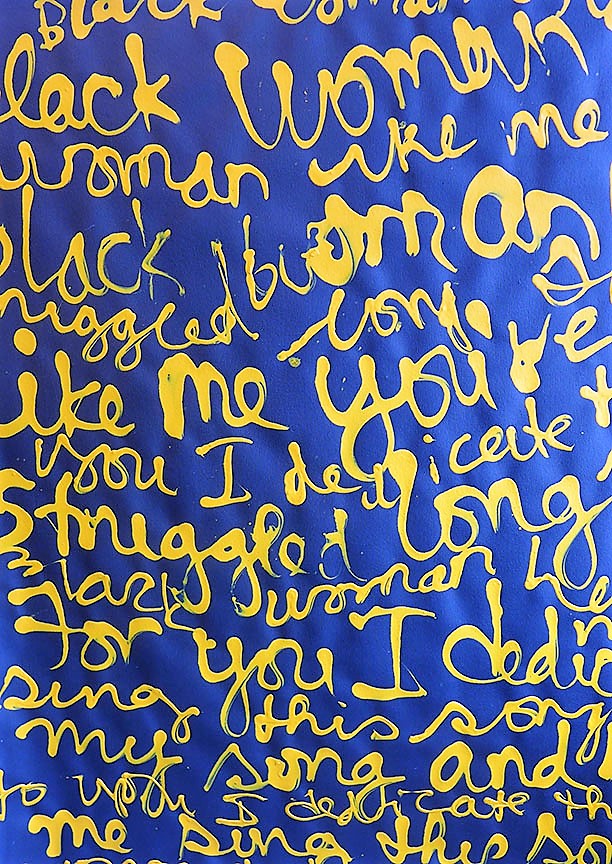 Black woman
lack Woman
woman like me
black woman
ruggled
long
ike me you've
you I dedicate
Struggled long
black woman
for you I dedic
sing this song
my song and
to you I dedicate th
me sing this so